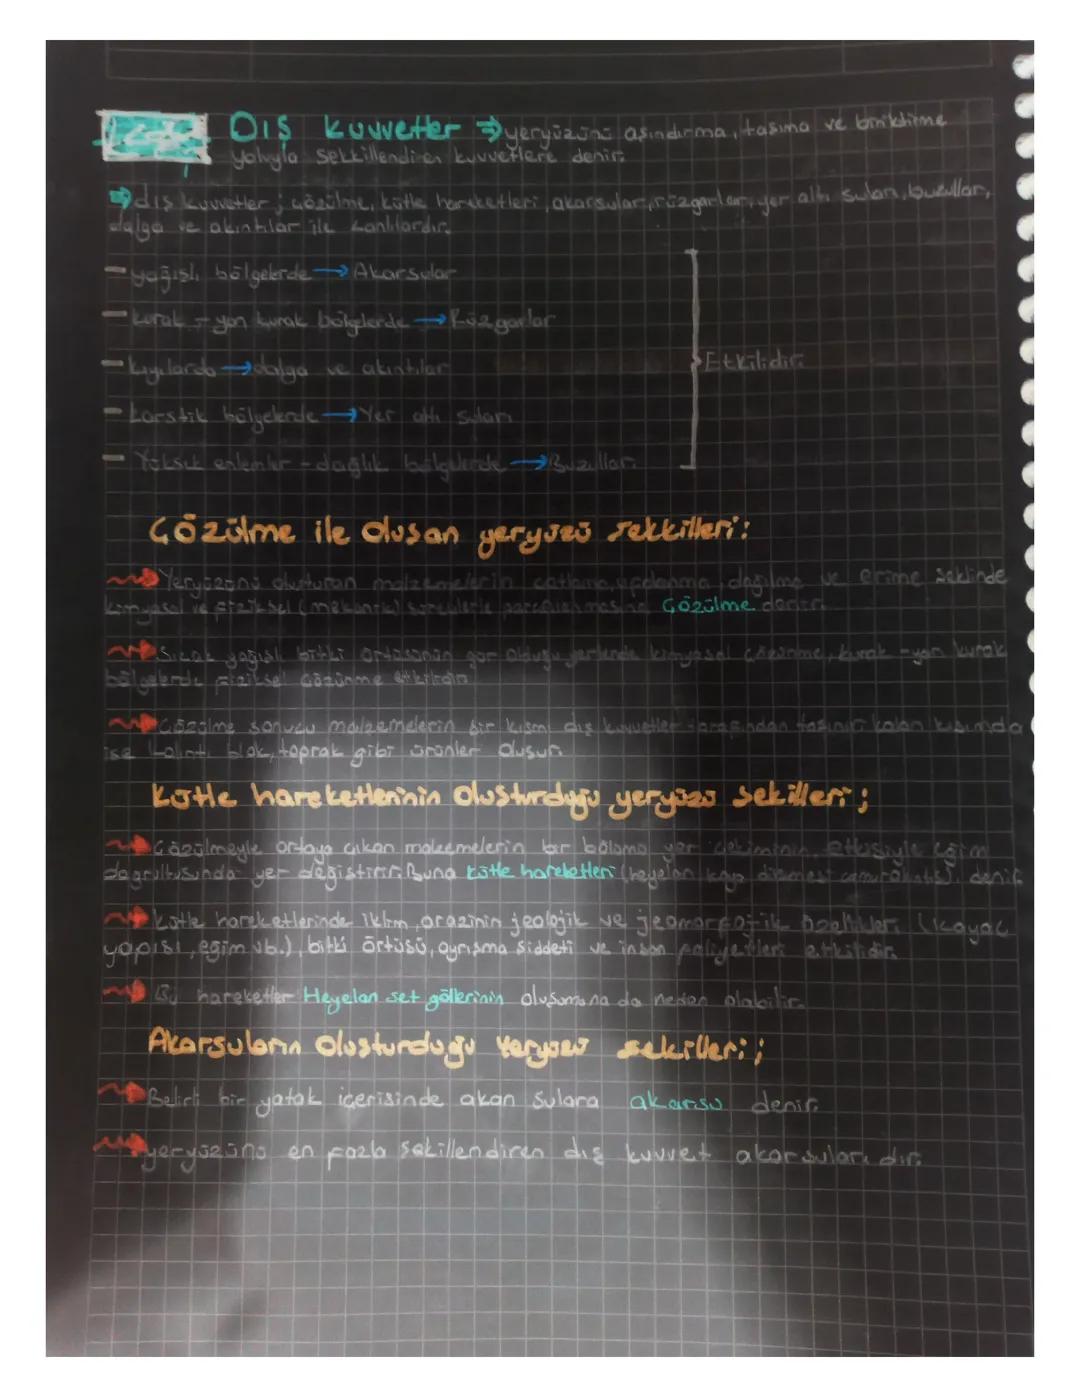 Dış kuvvetler ⇒ yeryüzünü aşındırma, taşıma ve biriktirme
yoluyla şekkillendiren kuvvetlere denir.
⇒ dış kuvvetler; çözülme, kütle hareketleri, akarsular, rüzgarlar, yer altı suları, buzullar,
dalga ve akıntılar ile canlılardır.
- yağışlı bölgelerde → Akarsular
- kurak - yarı kurak bölgelerde → Rüzgarlar
- kıyılarda → dalga ve akıntılar
Etkilidir.
- karstik bölgelerde → Yer altı suları
- Yüksek enlemler - dağlık bölgelerde → Buzullar.
Çözülme ile oluşan yeryüzü şekkilleri:
Yeryüzünü oluşturan malzemelerin çatlama, ufalanma, dağılma ve erime şeklinde
kimyasal ve fiziksel (mekanik) süreçlerle parçalanmasına Çözülme denir.
Sıcak yağışlı bitki örtüsünün gür olduğu yerlerde kimyasal çözünme, kurak - yarı kurak
bölgelerde fiziksel çözünme etkilidir.
Çözülme sonucu malzemelerin bir kısmı dış kuvvetler tarafından taşınır kalan kısımda
ise kalıntı blok, toprak gibi ürünler oluşur.
Kütle hareketlerinin oluşturduğu yeryüzü şekilleri;
Çözülmeyle ortaya çıkan malzemelerin bir bölümü yer çekiminin etkisiyle eğim
doğrultusunda yer değiştirir. Buna kütle hareketleri (heyelan kaya düşmesi çamur akıntısı). denir.
Kütle hareketlerinde iklim, arazinin jeolojik ve jeomorfojik özellikleri (kayaç
yapısı, eğim vb.), bitki örtüsü, ayrışma şiddeti ve insan faliyetleri etkilidir.
Bu hareketler Heyelan set göllerinin oluşumuna da neden olabilir.
Akarsuların oluşturduğu yeryüzü şekilleri;
Belirli bir yatak içerisinde akan sulara akarsu denir.
yeryüzünü en fazla şekillendiren dış kuvvet akarsuları dır.